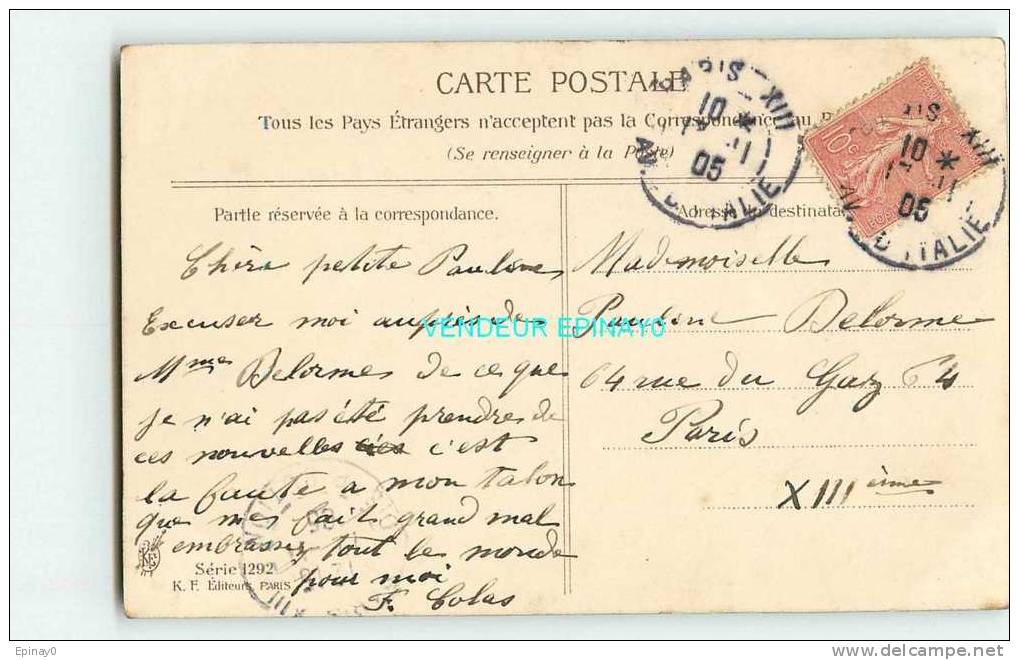 CARTE POSTALE
Tous les Pays Étrangers n'acceptent pas la Correspondance au
(Se renseigner à la Poste)
PARIS XIII
10 *
11
05
AV. D'ITALIE
10c
PARIS XIII
10 *
11
05
AV. D'ITALIE
Partie réservée à la correspondance.
Chère petite Pauline
Excuser moi auprès de
Mme Delormes de ce que
je n'ai pas été prendres de
ces nouvelles c'est
la faute a mon talon
que mes fait grand mal
embrassez tout le monde
pour moi
F. Colas
Adresse du destinata
Mademoiselle
Pauline Delorme
64 rue du Gaz 64
Paris
XIIIème
VENDEUR EPINAY0
Série 1292
K. F. Éditeurs, PARIS
Epinay0
http://www.delcampe.net